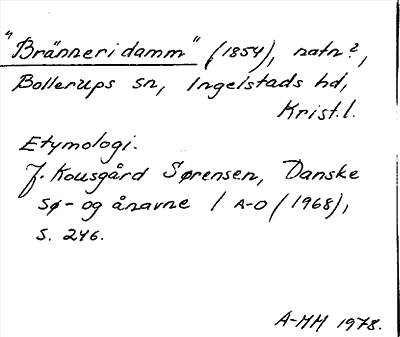 "Bränneridamm" (1854), natn?,
Bollerups sn, Ingelstads hd,
Krist.l.
Etymologi.
J. Kousgård Sørensen, Danske
sø- og ånavne 1 A-O (1968),
s. 246.
A-MH 1978.